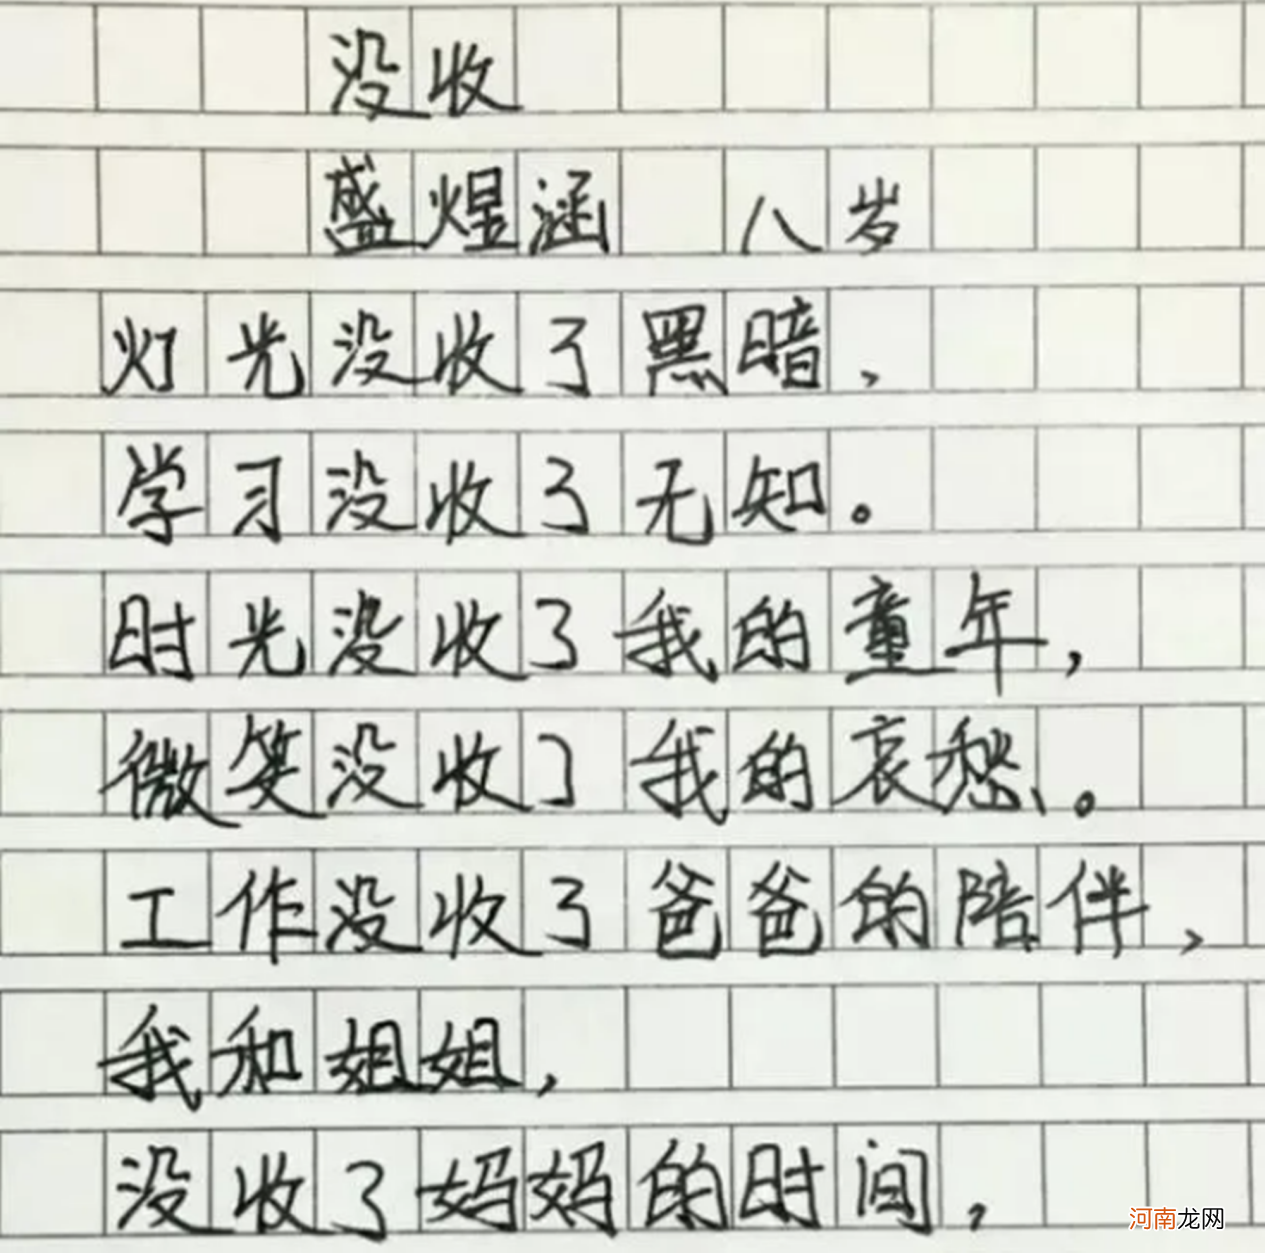 没收
盛煜涵 八岁
灯光没收了黑暗、
学习没收了无知。
时光没收了我的童年,
微笑没收了我的哀愁、。
工作没收了爸爸的陪伴、
我和姐姐,
没收了妈妈的时间,
河南龙网